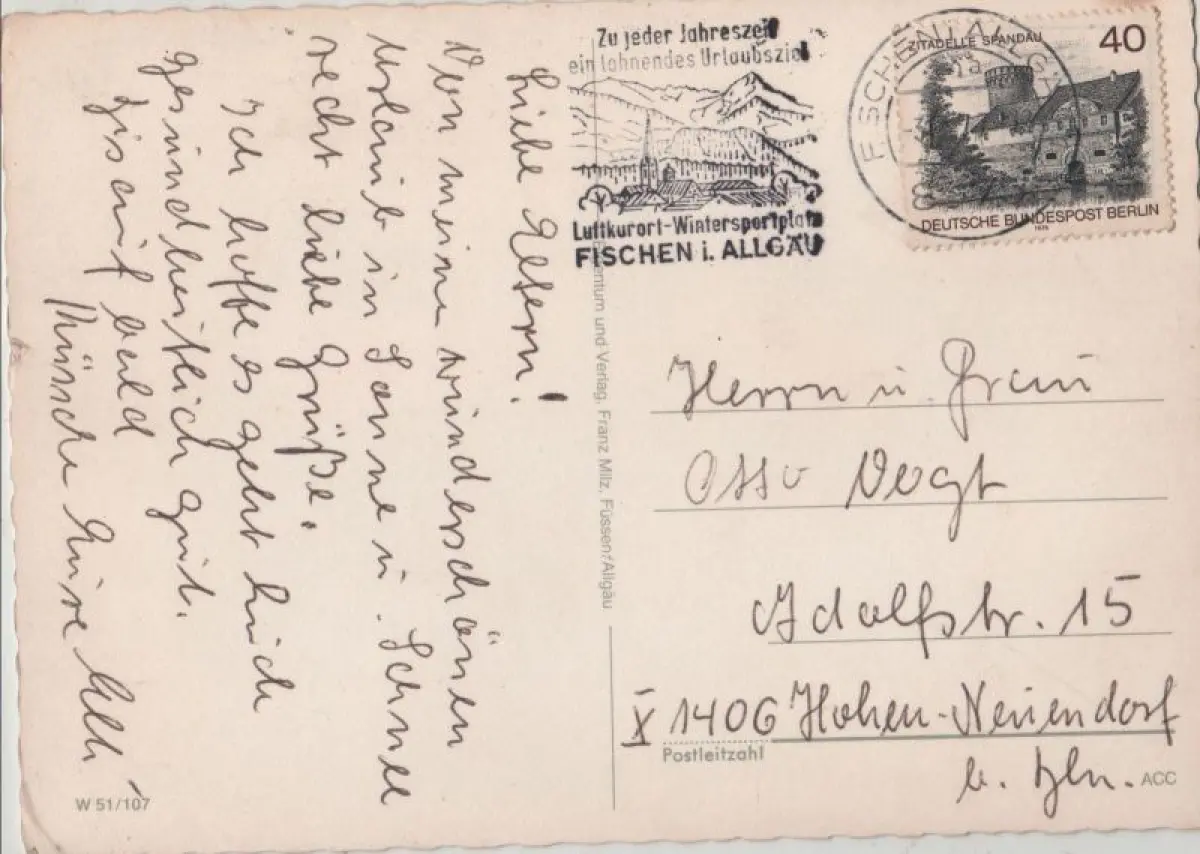 Liebe Eltern!
Von meim wunderschönen
Urlaub in Sonne u. Schnee
recht liebe Grüße.
Ich hoffe es geht Euch
gesundheitlich gut.
Bis auf bald
Küsse Eure Elli
Zu jeder Jahreszeit
ein lohnendes Urlaubsziel
Luftkurort-Wintersportplatz
FISCHEN i. ALLGÄU
FISCHEN ALLG
ZITADELLE SPANDAU
40
DEUTSCHE BUNDESPOST BERLIN
und Verlag, Franz Milz, Füssen/Allgäu
Herrn u. Frau
Otto Vogt
Adolfstr. 15
X 1406 Hohen-Neuendorf
b. Bln.
Postleitzahl
ACC
W 51/107